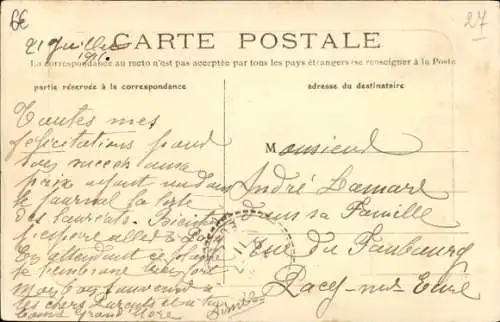 6E
27
21 Juillet
CARTE POSTALE
La correspondance au recto n'est pas acceptée par tous les pays étrangers (se renseigner à la Poste
partie réservée à la correspondance
adresse du destinataire
Toutes mes
félicitations pour
ton succès aux
prix ayant vu dans
le journal la liste
des lauréats. Bientôt
j'espère aller à Pacy
En attendant ce plaisir
je t'embrasse bien fort
Mon bon souvenir à
tes chers Parents et à
Bonne Grand Mère
Monsieur
André Lamare
dans sa Famille
Rue du Faubourg
Pacy-sur-Eure